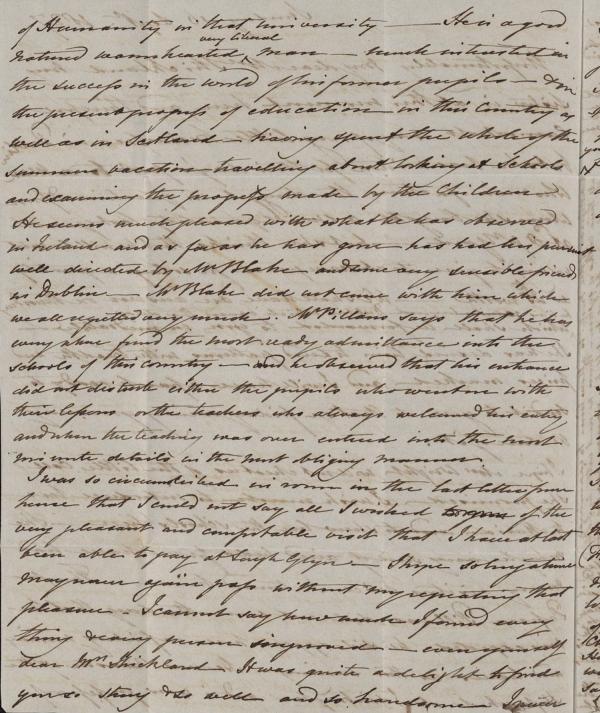 of Humanity in that university — He is a good
very liberal
natured warmhearted, man — much interested in
the success in the world of his former pupils — & in
the present progress of education — in this Country as
well as in Scotland — having spent the whole of the
summer vacation travelling about looking at Schools
and examining the progress made by the Children —
He seems much pleased with what he has observed
in Ireland and as far as he has gone has had his pursuit
well directed by Mr Blake and some very sensible friends
in Dublin — Mr Blake did not come with him which
we all regretted very much. Mr Pillans says that he has
every where found the most ready admittance into the
schools of this country — and he observed that his entrance
did not disturb either the pupils who went on with
their lessons or the teachers who always welcomed his entry
and when the teaching was over entered into the most
minute details in the most obliging manner.
I was so circumscribed in room in the last letter from
hence that I could not say all I wished of the
very pleasant and comfortable visit that I have at last
been able to pay at Lough Glynn — I hope so long a time
may never again pass without my repeating that
pleasure — I cannot say how much I found every
thing & every person improved — even yourself
dear Mrs Strickland It was quite a delight to find
you so strong & so well and so handsome I never